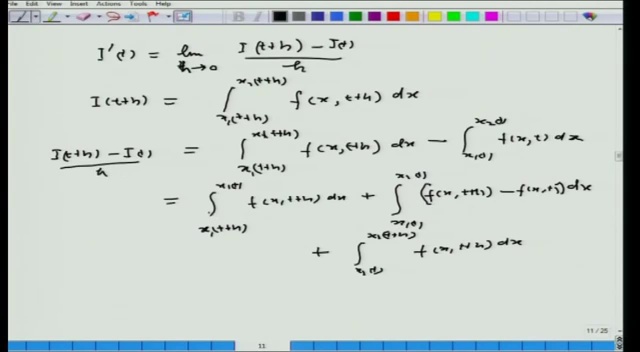 File Edit View Insert Actions Tools Help
I'(t) = lim_{h→0} \frac{I(t+h) - I(t)}{h}
I(t+h) = ∫_{x_1(t+h)}^{x_2(t+h)} f(x, t+h) dx
\frac{I(t+h) - I(t)}{h} = ∫_{x_1(t+h)}^{x_2(t+h)} f(x, t+h) dx - ∫_{x_1(t)}^{x_2(t)} f(x, t) dx
= ∫_{x_1(t+h)}^{x_1(t)} f(x, t+h) dx + ∫_{x_1(t)}^{x_2(t)} (f(x, t+h) - f(x, t)) dx
+ ∫_{x_2(t)}^{x_2(t+h)} f(x, t+h) dx
11 / 25
11